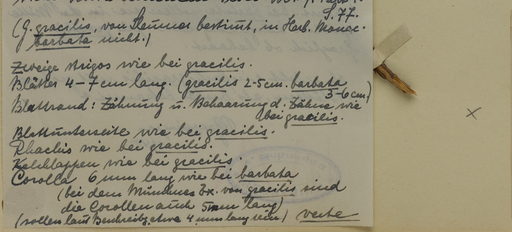 S. 77.
(G. gracilis, von Sleumer bestimt, in Herb. Monac.
barbata nicht.)
Zweige strigos wie bei gracilis.
Blätter 4-7 cm lang. (gracilis 2-5 cm. barbata
3-6 cm)
Blattrand: Zähnung u. Behaarung d. Zähne wie
bei gracilis.
Blattunterseite wie bei gracilis.
Rhachis wie bei gracilis.
Kelchlappen wie bei gracilis.
Corolla 6 mm lang wie bei barbata
(bei dem Münchner Ex. von gracilis sind
die Corollen auch 5mm lang)
(sollen laut Beschreibg. etwa 4 mm lang sein) verte